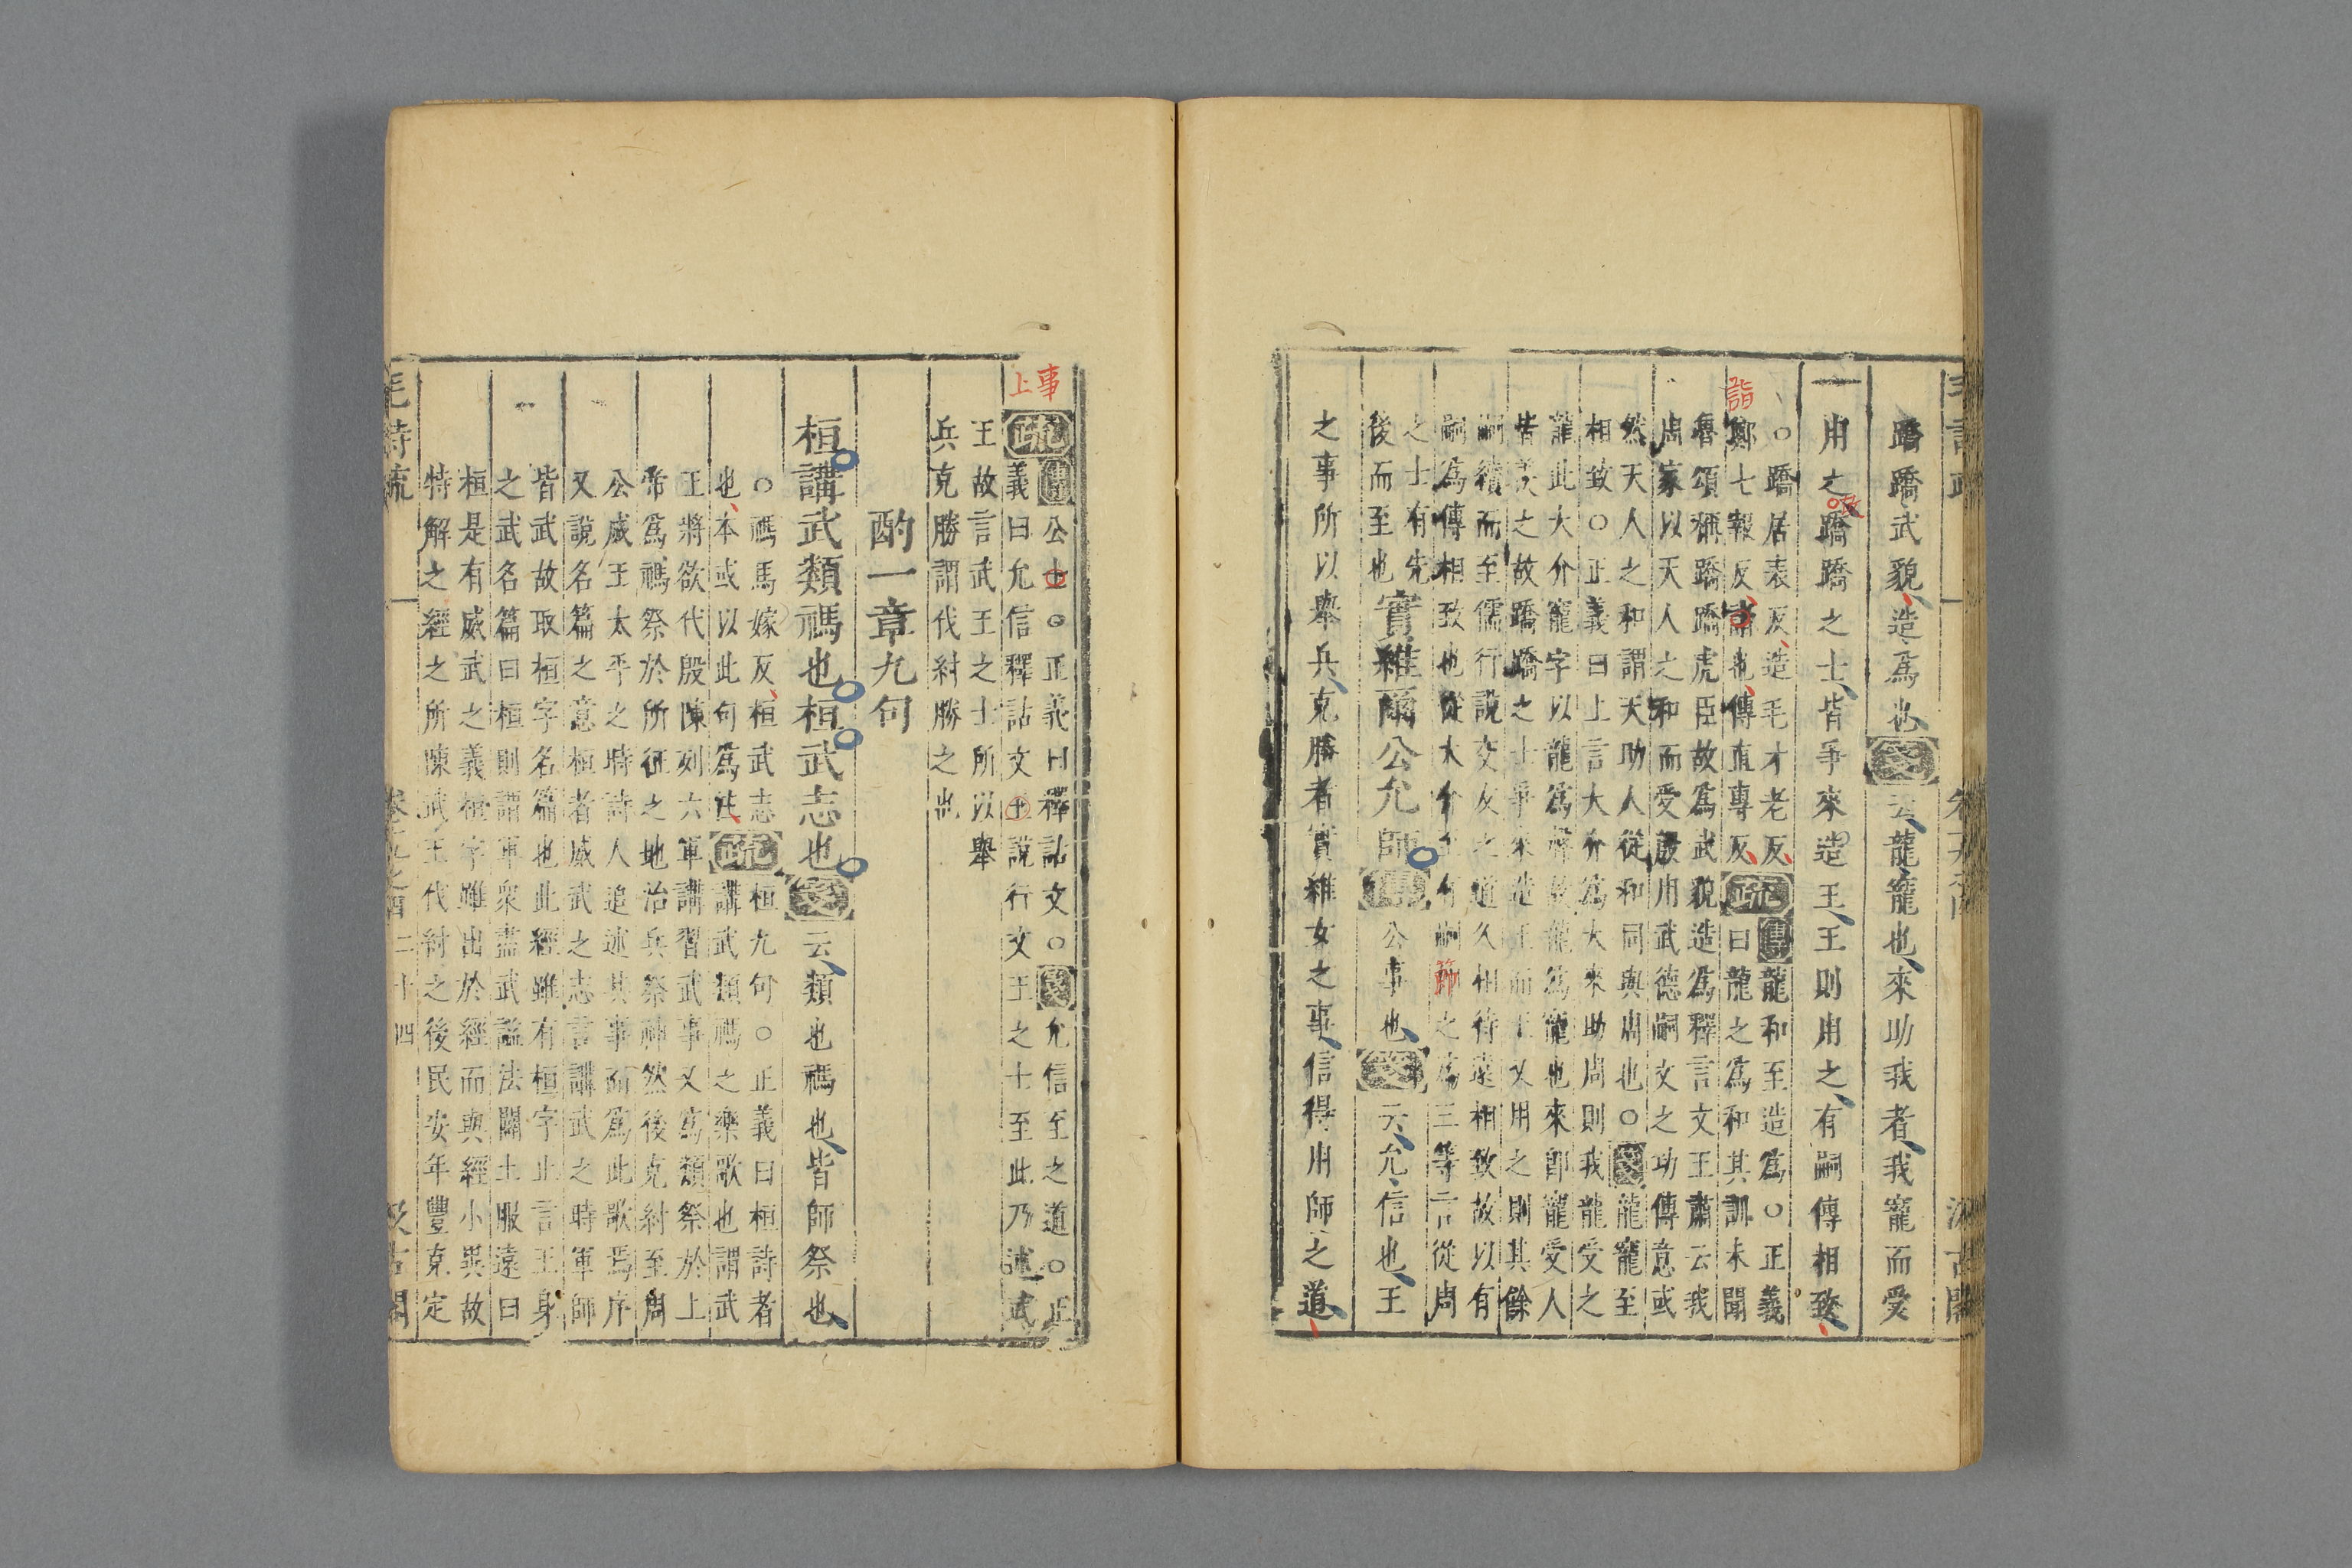 蹻蹻武貌造爲也箋云龍寵也來助我者我寵而受
用之蹻蹻之士皆爭來造王王則用之有嗣傳相致
○蹻居表反造毛才老反疏傳龍和至造爲○正義
鄭七報反詣也傳直專反曰龍之爲和其訓未聞
魯頌稱蹻蹻虎臣故爲武貌造爲釋言文王肅云我
周家以天人之和而受殷用武德嗣文之功傳意或
然天人之和謂天助人從和同與周也○箋龍寵至
相致○正義曰上言大介爲大來助周則我龍受之
龍此大介寵字以龍爲聲故龍爲寵也來卽寵受人
皆美之故蹻蹻之士爭來造王而王又用之則其餘
嗣續而至儒行說交友之道久相待遠相致故以有
嗣爲傳相致也從大介至有嗣之爲三等言從周
之士有先
後而至也實維爾公允師傳公事也箋云允信也王
之事所以舉兵克勝者實維女之事信得用師之道
疏傳公士○正義曰釋詁文○箋允信至之道○正
義曰允信釋詁文王說行文王之士至此乃述武
王故言武王之士所以舉
兵克勝謂伐紂勝之也
酌一章九句
桓講武類禡也桓武志也箋云類也禡也皆師祭也
○禡馬嫁反桓武志疏桓九句○正義曰桓詩者
也本或以此句爲注講武類禡之樂歌也謂武
王將欲伐殷陳列六軍講習武事又爲類祭於上
帝爲禡祭於所征之地治兵祭神然後克紂至周
公成王太平之時詩人追述其事而爲此歌焉序
又說名篇之意桓者威武之志言講武之時軍師
皆武故取桓字名篇也此經雖有桓字止言王身
之武名篇曰桓則謂軍衆盡武謚法闢土服遠曰
桓是有威武之義桓字雖出於經而與經小異故
特解之經之所陳武王伐紂之後民安年豐克定
毛詩疏
二十四
汲古閣
詣
師
事
上